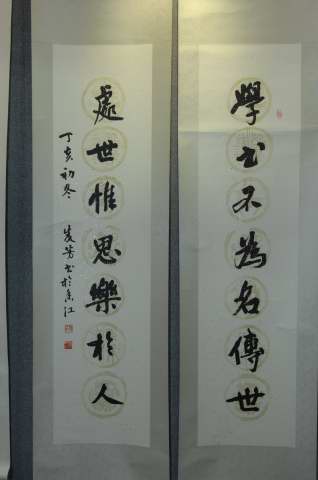 學书不為名傳世
處世惟思樂於人
丁亥初冬 芳书於香江